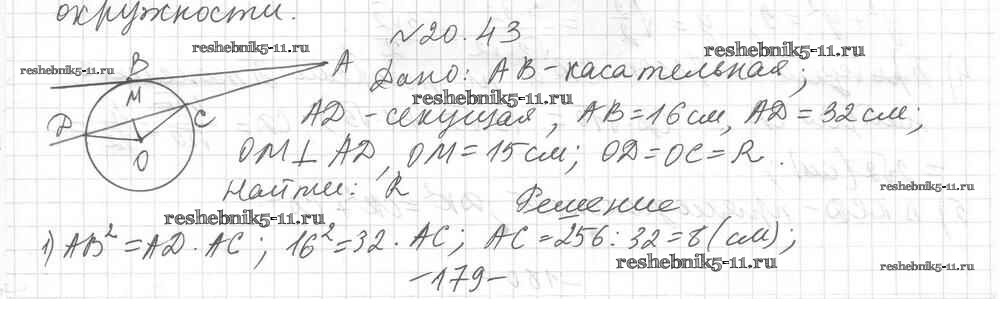 окружности.
№20.43
reshebnik5-11.ru
reshebnik5-11.ru
reshebnik5-11.ru
B
A
M
D
C
O
Дано: AB-касательная;
reshebnik5-11.ru
AD-секущая; AB=16см, AD=32см;
OM⊥AD, OM=15см; OD=OC=R.
Найти: R
reshebnik5-11.ru
Решение
reshebnik5-11.ru
1) AB²=AD·AC; 16²=32·AC; AC=256:32=8(см);
reshebnik5-11.ru
reshebnik5-11.ru
-179-